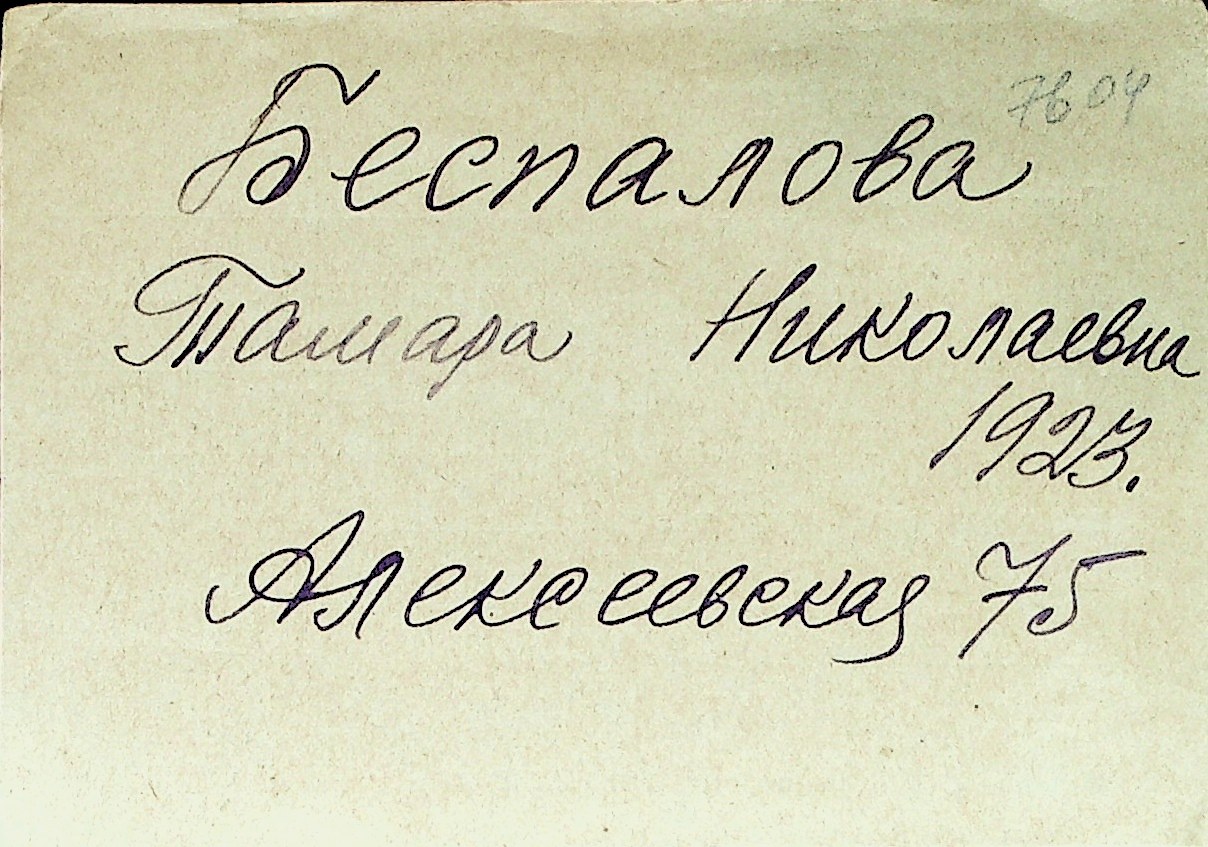 7604
Беспалова
Тамара Николаевна
1923.
Алексеевская 75